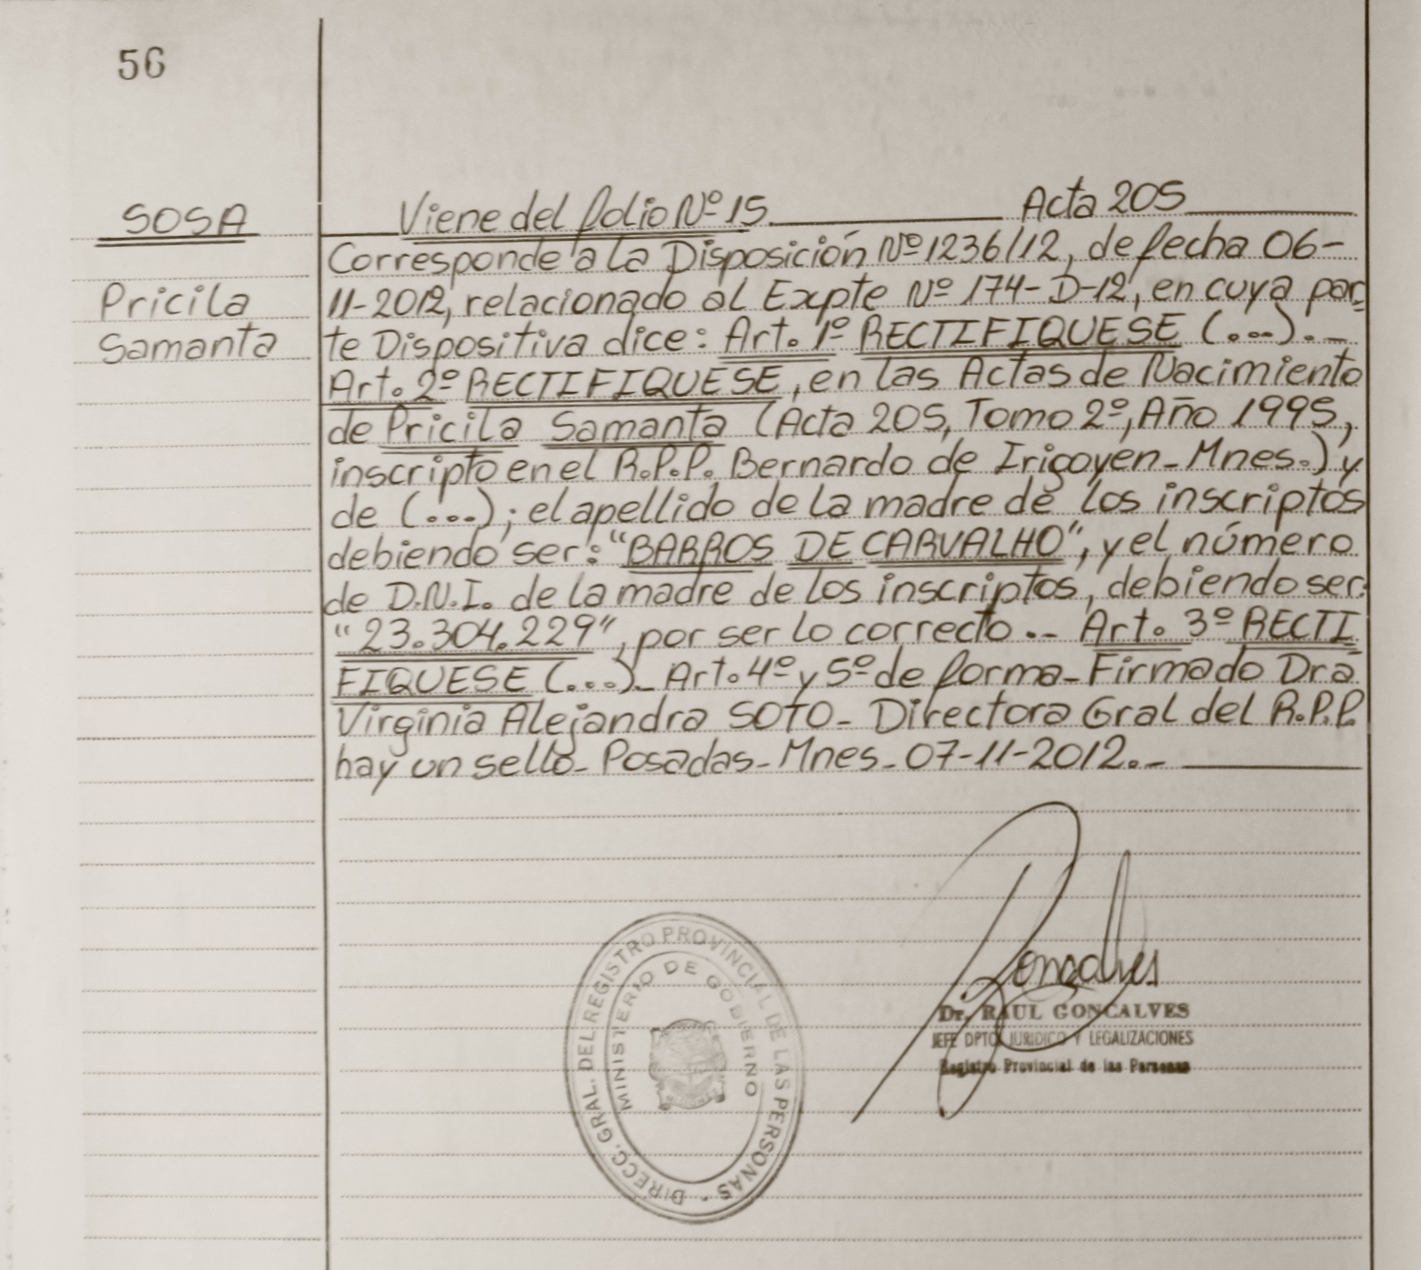 56
SOSA
Pricila
Samanta
Viene del folio Nº 15. Acta 205
Corresponde a la Disposición Nº 1236/12, de fecha 06-
11-2012, relacionado al Expte Nº 174-D-12, en cuya par-
te Dispositiva dice: Art. 1º RECTIFIQUESE (...).-
Art. 2º RECTIFIQUESE, en las Actas de Nacimiento
de Pricila Samanta (Acta 205, Tomo 2º, Año 1995,
inscripto en el R.P.P. Bernardo de Irigoyen-Mnes.) y
de (...); el apellido de la madre de los inscriptos
debiendo ser: "BARROS DE CARVALHO", y el número
de D.N.I. de la madre de los inscriptos, debiendo ser:
"23.304.229", por ser lo correcto.- Art. 3º RECTI
FIQUESE (...)- Art. 4º y 5º de forma-Firmado Dra
Virginia Alejandra SOTO- Directora Gral del R.P.P.
hay un sello- Posadas-Mnes- 07-11-2012.-
Goncalves
Dr. RAUL GONCALVES
JEFE DPTO JURIDICO Y LEGALIZACIONES
Registro Provincial de las Personas
DIRECC. GRAL. DEL REGISTRO PROVINCIAL DE LAS PERSONAS -
MINISTERIO DE GOBIERNO